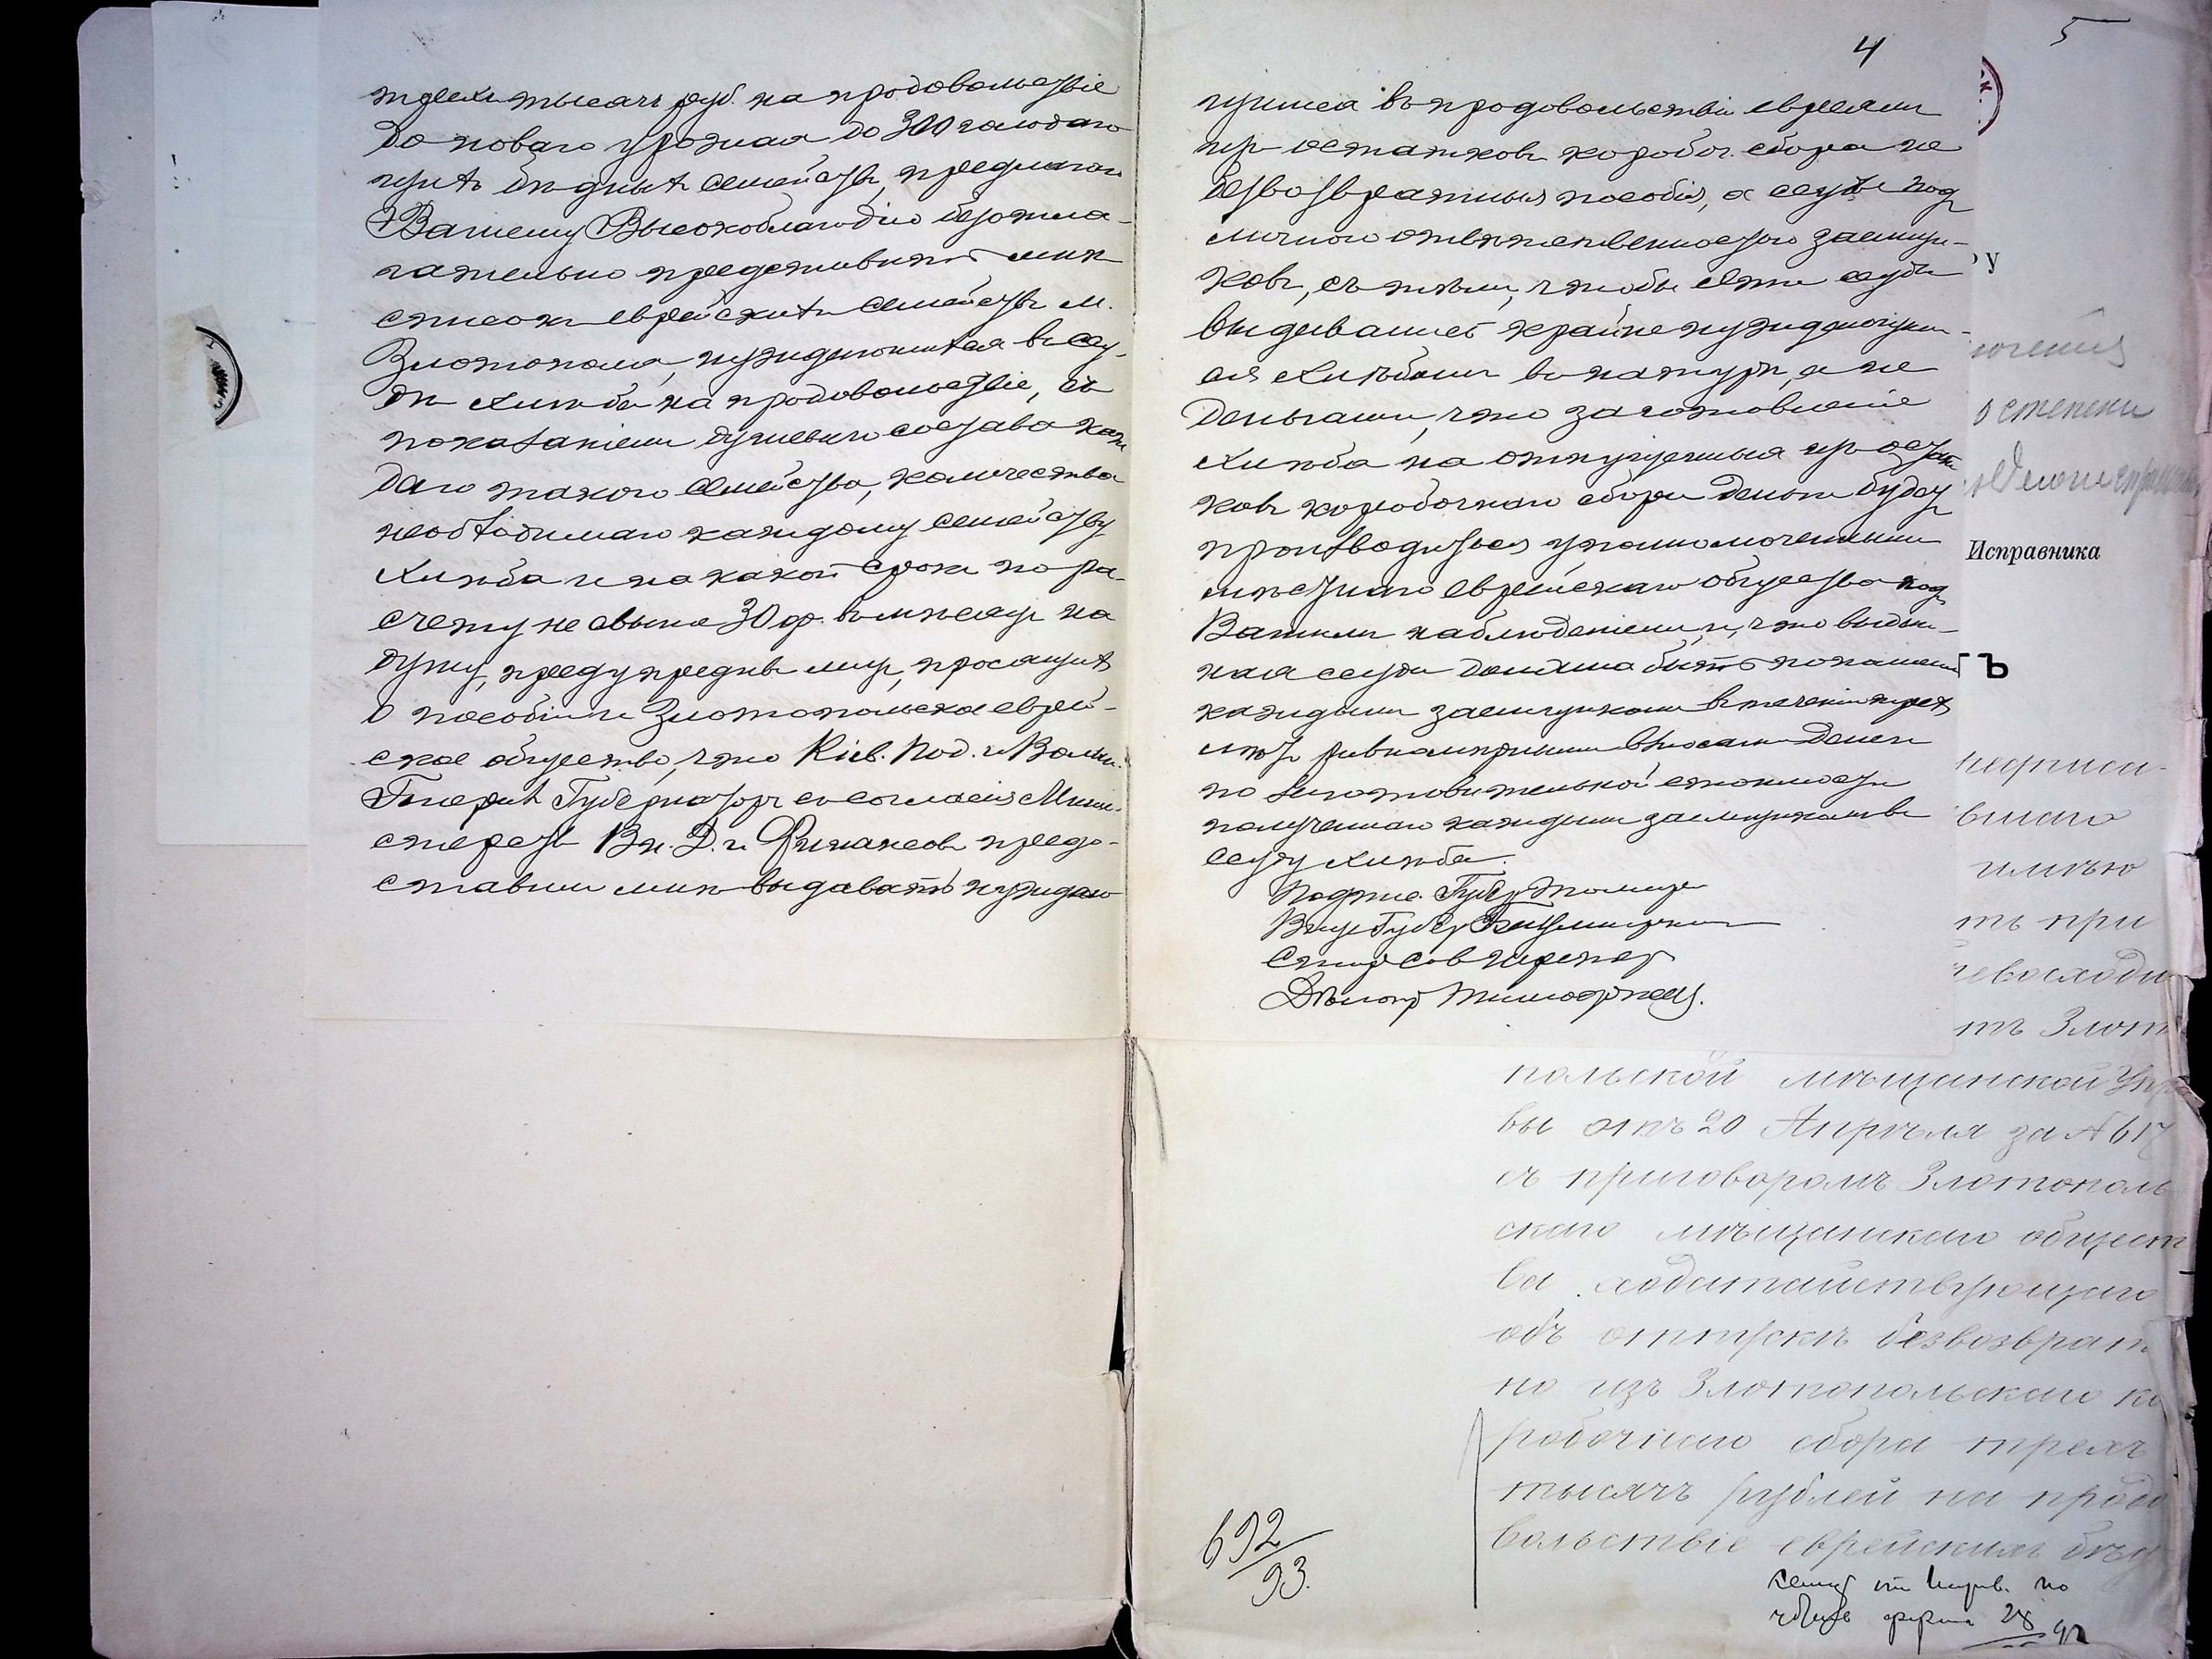 трехъ тысячъ руб. на продовольствіе
до новаго урожая до 300 голодаю
щихъ бѣдныхъ семействъ, предлагаю
Вашему Высокоблагодію безотла-
гательно представить мнѣ
списокъ еврейскихъ семействъ м.
Златополя, нуждающихся въ ссу-
дѣ хлѣба на продовольствіе, съ
показаніемъ душевого состава каж
даго такого семейства, количества
необходимаго каждому семейству
хлѣба и на какой срокъ по ра-
счету не свыше 30 ф. въ мѣсяцъ на
душу, предупредивъ лицъ, просящихъ
о пособіи и Златопольское еврей-
ское общество, что Кіев. Под. и Волын.
Генералъ Губернаторъ съ согласія Мини-
стерствъ Вн. Д. и Финансовъ предо-
ставилъ мнѣ выдавать нуждаю
4
щимся въ продовольствіи евреямъ
изъ остатковъ коробоч. сбора не
безвозвратныя пособія, а ссуды подъ
личною отвѣтственностью заемщи-
ковъ, съ тѣмъ, чтобы эти ссуды
выдавались крайне нуждающим-
ся хлѣбомъ въ натурѣ, а не
деньгами, что заготовленіе
хлѣба на отпущенныя изъ остат
ковъ коробочнаго сбора деньги будетъ
производиться уполномоченными
мѣстнаго еврейскаго общества подъ
Вашимъ наблюденіемъ и, что выдан-
ная ссуда должна быть пополнена
каждымъ заемщикомъ въ теченіи трехъ
лѣтъ равномѣрными взносами денегъ
по заготовительной стоимости
полученнаго каждымъ заемщикомъ въ
ссуду хлѣба.
Подпис. Губер. Томара
Вице Губер.
Старш Сов
Дѣлопр.
5
у
остепени
Исправника
Ъ
надписи-
вшаго
имѣю
ть при
евосходи
тъ Злат
польской мѣщанской Упра
вы отъ 20 Апрѣля за № 617
съ приговоромъ Златополь
скаго мѣщанскаго общест
ва ходатайствующаго
объ отпускѣ безвозврат
но изъ Златопольскаго ко
робочнаго сбора трехъ
тысячъ рублей на продо
вольствіе еврейскихъ бѣд
692/93.
по
28
92